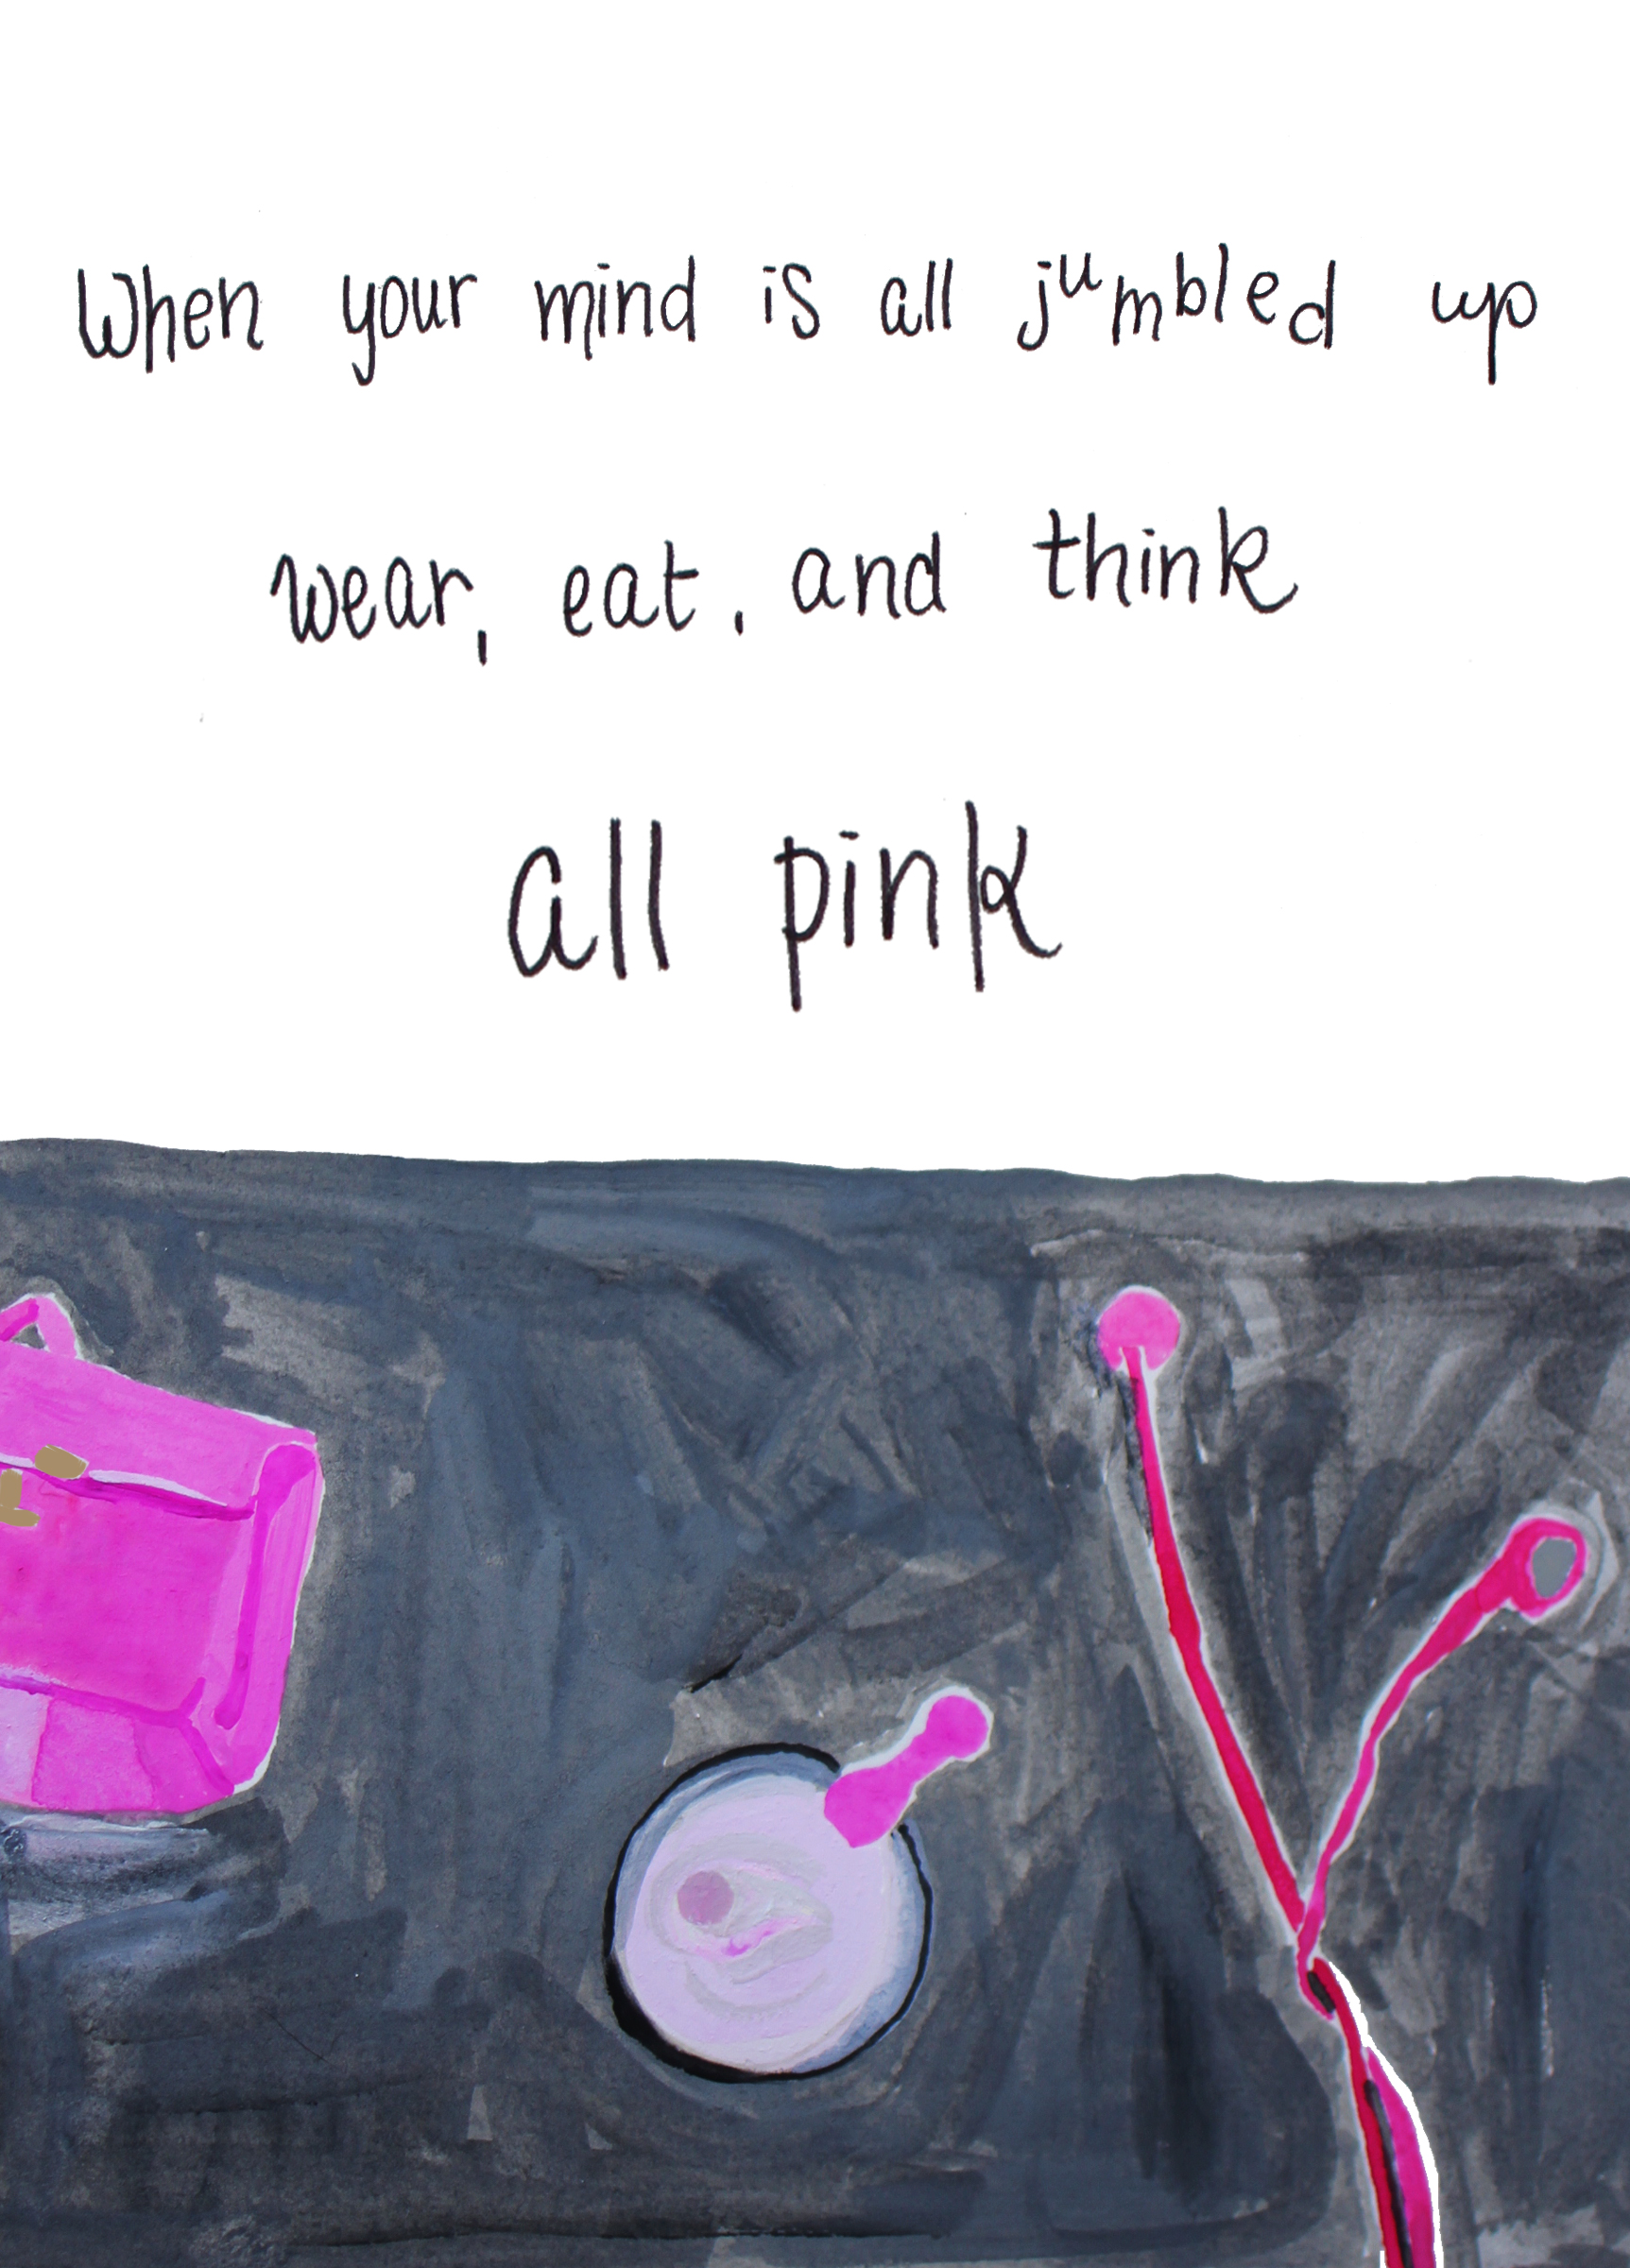 When your mind is all jumbled up
wear, eat, and think
all pink